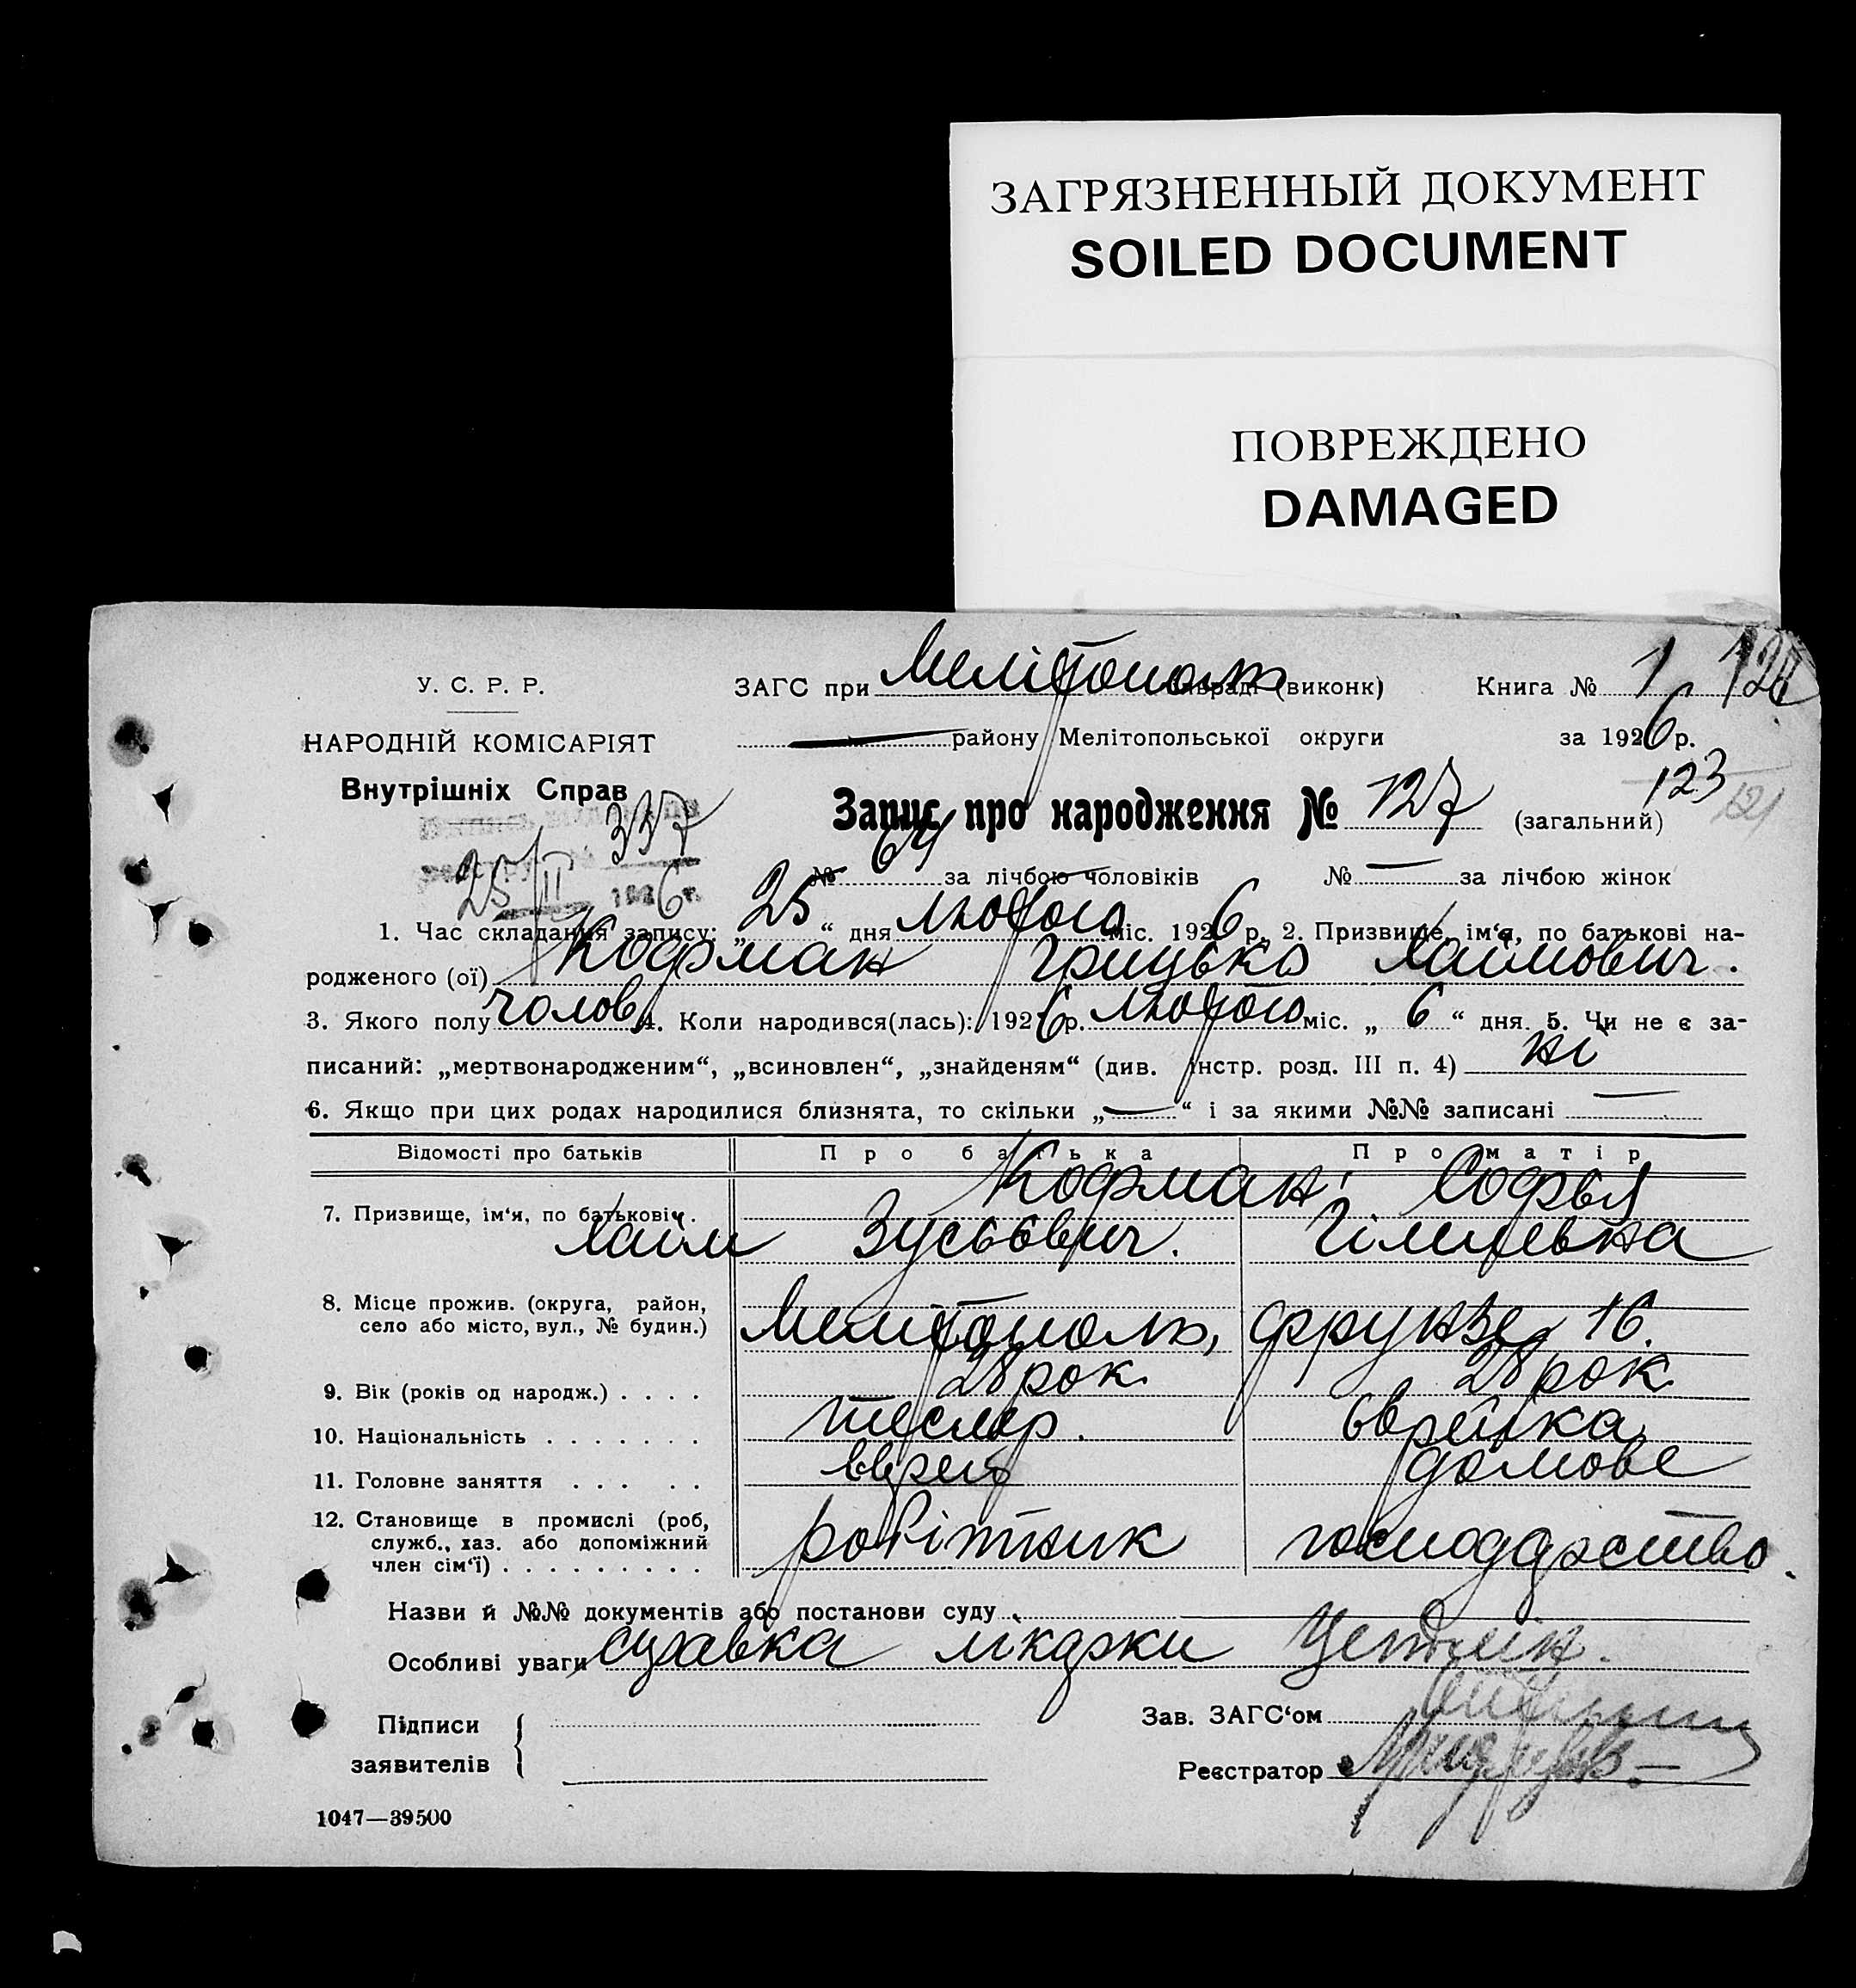 ЗАГРЯЗНЕННЫЙ ДОКУМЕНТ
SOILED DOCUMENT
ПОВРЕЖДЕНО
DAMAGED
У. С. Р. Р.
ЗАГС при Мелітополь (виконк) Книга № 1
НАРОДНІЙ КОМІСАРІЯТ
— району Мелітопольської округи за 1926 р.
Внутрішніх Справ
123
Запис про народження № 127 (загальний)
121
337
25/II 1926 г.
№ 64 за лічбою чоловіків № — за лічбою жінок
1. Час складання запису: „ 25 “ дня лютого міс. 1926 р. 2. Призвище, ім‘я, по батькові на-
родженого (ої) Кофман Грицько Хаймович.
3. Якого полу чолов 4. Коли народився(лась): 1926 р. лютого міс. „ 6 “ дня 5. Чи не є за-
писаний: „мертвонародженим“, „всиновлен“, „знайденям“ (див. інстр. розд. III п. 4) ні
6. Якщо при цих родах народилися близнята, то скільки „ — “ і за якими №№ записані —
Відомості про батьків Про батька Про матір
7. Призвище, ім‘я, по батькові. Кофман Софья
Хайм Зусьович.
8. Місце прожив. (округа, район,
село або місто, вул., № будин.) Мелітополь, Фрунзе, 16.
9. Вік (років од народж.) . . . . 28 рок. 28 рок.
10. Національність . . . . . . . тесляр. єврейка
11. Головне заняття . . . . . єврей домове
12. Становище в промислі (роб,
служб., хаз. або допоміжний
член сім‘ї) . . . . . . . . . робітник господарство.
Назви й №№ документів або постанови суду
Особливі уваги справка лікарки Цетлін.
Підписи
заявителів
Зав. ЗАГС‘ом
Реєстратор
1047—39500